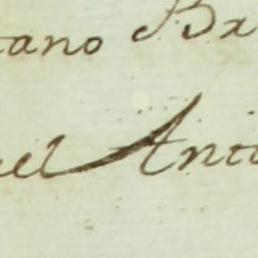 tano Bx
el Anto